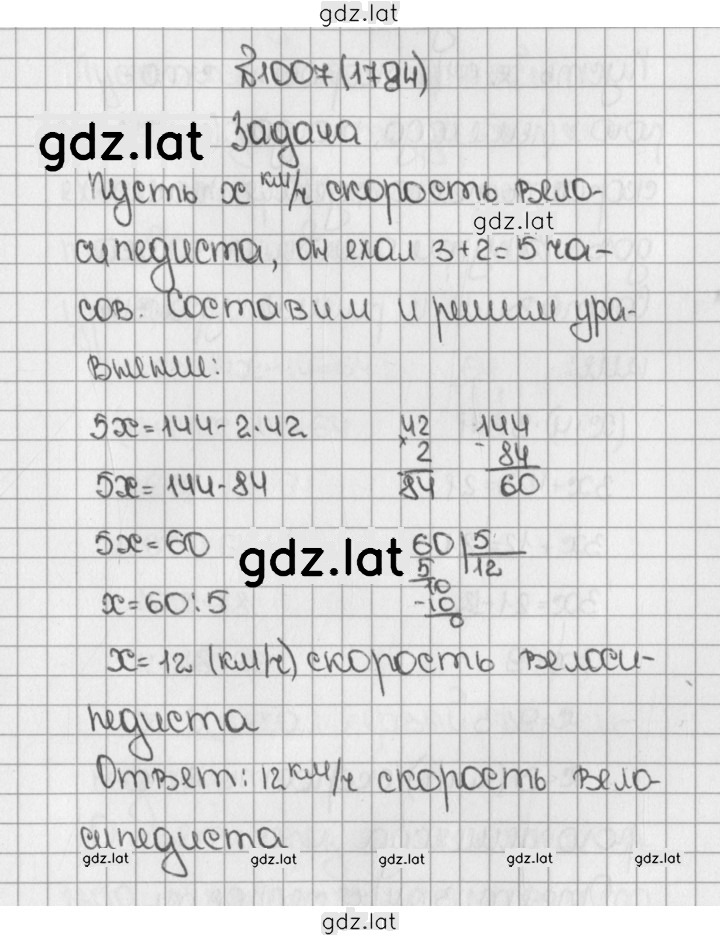 gdz.lat
№1007(1784)
gdz.lat Задача
Пусть x км/ч скорость вело-
gdz.lat
сипедиста, он ехал 3+2=5 ча-
сов. Составим и решим ура-
внение:
5x=144-2·42 42 144
× 2 - 84
5x=144-84 84 60
5x=60 gdz.lat 60 5
5 12
10
x=60:5 -10
0
x=12 (км/ч) скорость велоси-
педиста
Ответ: 12 км/ч скорость вело-
сипедиста
gdz.lat gdz.lat gdz.lat gdz.lat gdz.lat
gdz.lat